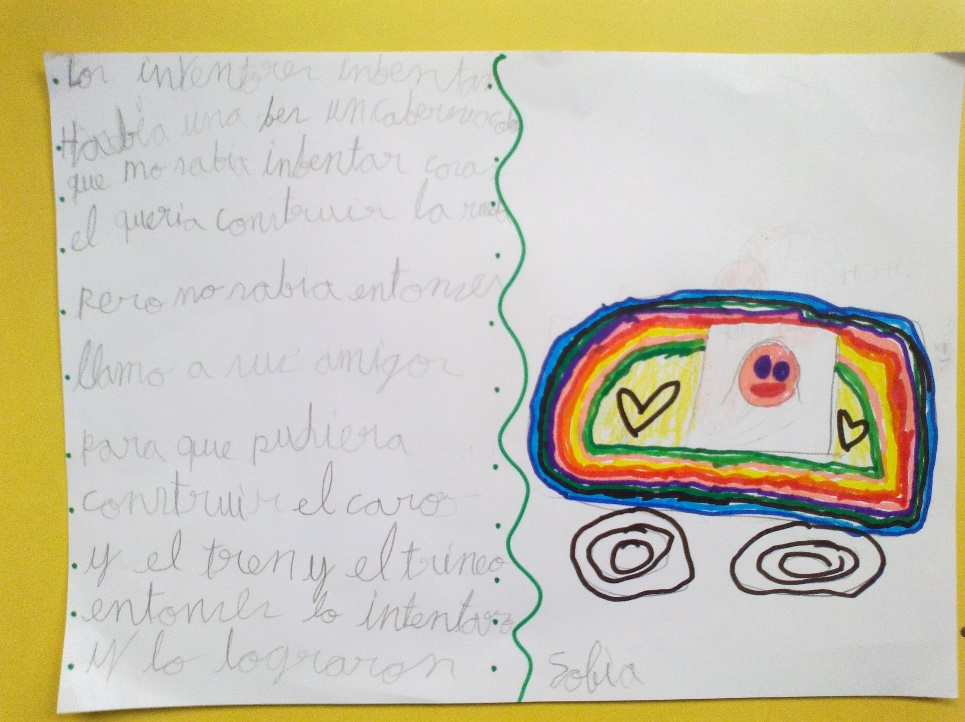 Los inventores inbentan
Había una bes un cabernicola
que no sabia inbentar cosas
el queria construir la rueda
pero no sabia entonses
llamo a sus amigos
para que pudiera
construir el caro
y el tren y el trineo
entonses lo intentaro
y lo lograron
Sofia